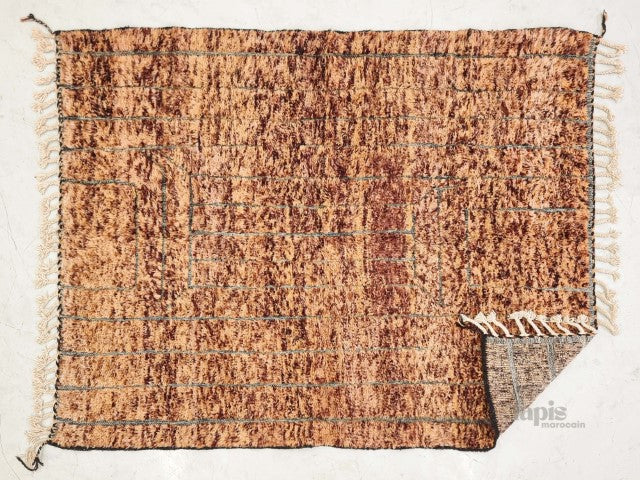 tapis
marocain